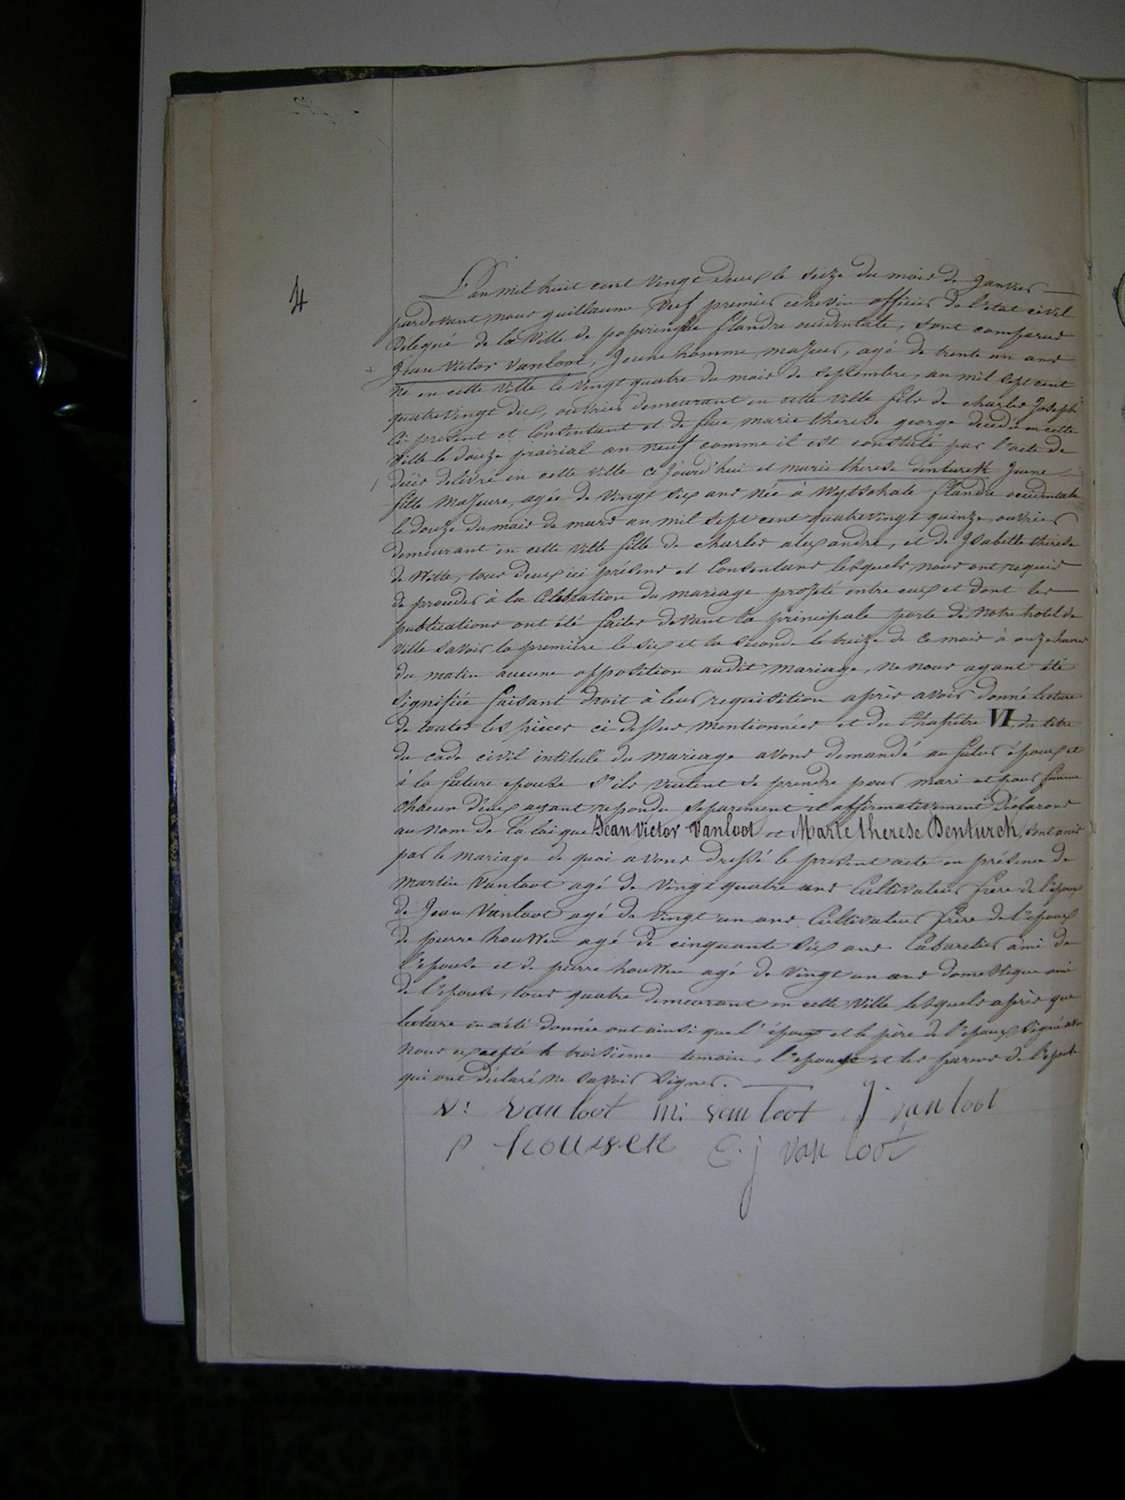 4
L'an mil huit cent vingt deux le seize du mois de Janvier
pardevant nous guillaume premier echevin officier de l'etat civil
delegué de la ville de poperinghe flandre occidentale, sont comparus
Jean Victor Vanloot, Jeune homme majeur, agé de trente un ans
né en cette ville le vingt quatre du mois de septembre, an mil sept cent
quatrevingt dix, ouvrier demeurant en cette ville fils de charles Joseph
ci présent et consentant et de feue marie therese george decédée en cette
ville le douze prairial an neuf comme il est constaté par l'acte de
décès delivré en cette ville ce jourd'hui et marie therese Denturck Jeune
fille majeure, agée de vingt six ans née à Wytschate flandre occidentale
le douze du mois de mars an mil sept cent quatrevingt quinze, ouvrier
demeurant en cette ville fille de charles alexandre, et de Isabelle therese
de Witte, tous deux ici présens et consentans lesquels nous ont requis
de proceder à la celebration du mariage projeté entre eux et dont les
publications ont été faites devant la principale porte de notre hotel de
ville savoir la première le six et la seconde le treize de ce mois à onze heures
du matin aucune opposition audit mariage, ne nous ayant été
signifiée faisant droit à leur requisition après avoir donné lecture
de toutes les pièces ci dessus mentionnées et du chapitre VI du titre
du code civil intitulé du mariage avons demandé au futur époux et
à la future epouse s'ils veulent se prendre pour mari et pour femme
chacun d'eux ayant repondu separement et affirmativement Déclarons
au nom de la loi que Jean Victor Vanloot et Marie therese Denturck sont unis
par le mariage de quoi avons dressé le present acte en présence de
martin Vanloot agé de vingt quatre ans Cultivateur frère de l'époux
de Jean Vanloot agé de vingt un ans Cultivateur frère de l'epoux
de pierre houssen agé de cinquante six ans Cabaretier ami de
l'epouse et de pierre houssen agé de vingt un ans domestique ami
de l'epouse, tous quatre demeurant en cette ville lesquels après que
lecture en a été donnée ont ainsi que l'époux et le père de l'epoux signé avec
nous excepté le troisième temoin, l'epouse et les parens de l'epouse
qui ont déclaré ne savoir signer.
v: vanloot m: vanloot J vanloot
P houssen C. j van loot